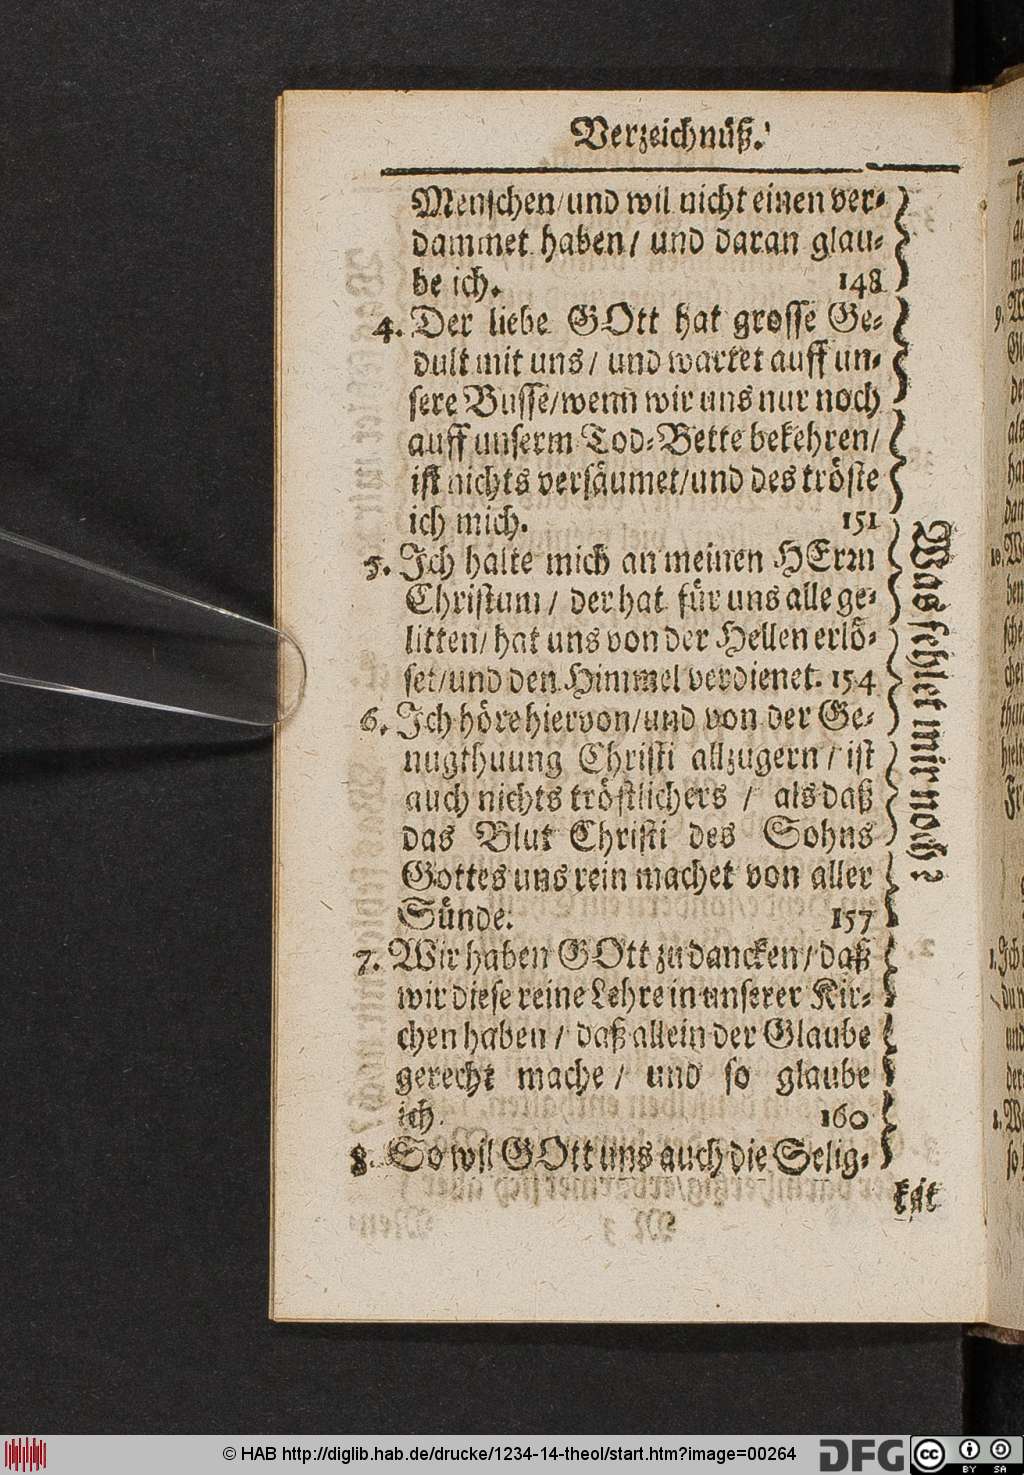 Verzeichnüß.
Menschen/und wil nicht einen ver⸗
dammet haben/ und daran glau⸗
be ich. 148
4. Der liebe GOtt hat grosse Ge⸗
dult mit uns/ und wartet auff un⸗
sere Busse/wenn wir uns nur noch
auff unserm Tod⸗Bette bekehren/
ist nichts versäumet/und des tröste
ich mich. 151
5. Ich halte mich an meinen HErrn
Christum/ der hat für uns alle ge⸗
litten/ hat uns von der Hellen erlö⸗
set/und den Himmel verdienet. 154
6. Ich höre hiervon/und von der Ge⸗
nugthuung Christi allzugern/ ist
auch nichts tröstlichers/ als daß
das Blut Christi des Sohns
Gottes uns rein machet von aller
Sünde. 157
7. Wir haben GOtt zu dancken/ daß
wir diese reine Lehre in unserer Kir⸗
chen haben/ daß allein der Glaube
gerecht mache/ und so glaube
ich. 160
8. So wil GOtt uns auch die Selig⸗
keit
Was fehlet mir noch?
© HAB http://diglib.hab.de/drucke/1234-14-theol/start.htm?image=00264
DFG
cc
BY SA